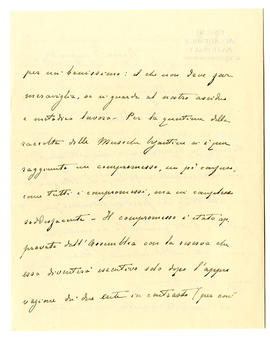 per un' benissimo: il che non deve far
meraviglia, se si guarda al nostro assiduo
e metodico lavoro - Per la questione della
raccolta della Musica bizantina si è
raggiunto un compromesso, un po' confuso,
come tutti i compromessi, ma in complesso
soddisfacente - Il compromesso è stato ap
provato dall'Assemblea con la riserva che
esso diventerà esecutivo solo dopo l'appro
vazione dei due enti in contrasto (per così